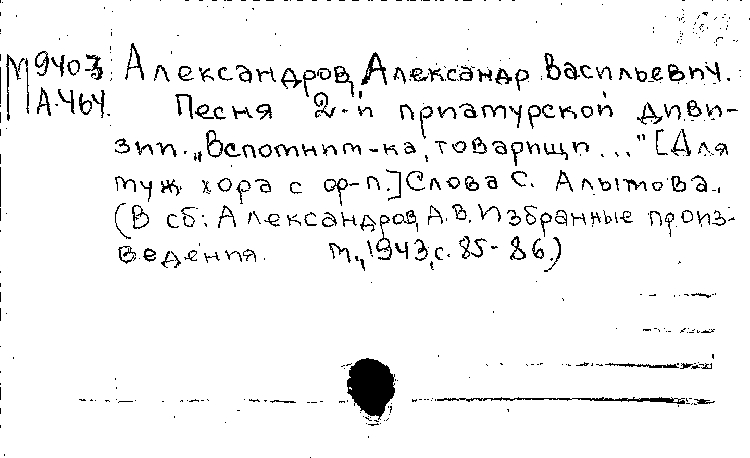 М 940-3 Александров, Александр Васильевич.
А-464. Песня 2-й приамурской диви-
зии. „Вспомним-ка, товарищи..." [Для
муж. хора с ф-п.] Слова С. Алымова.
(В сб: Александров, А.В. Избранные произ-
ведения. М., 1943, с. 85-86.)